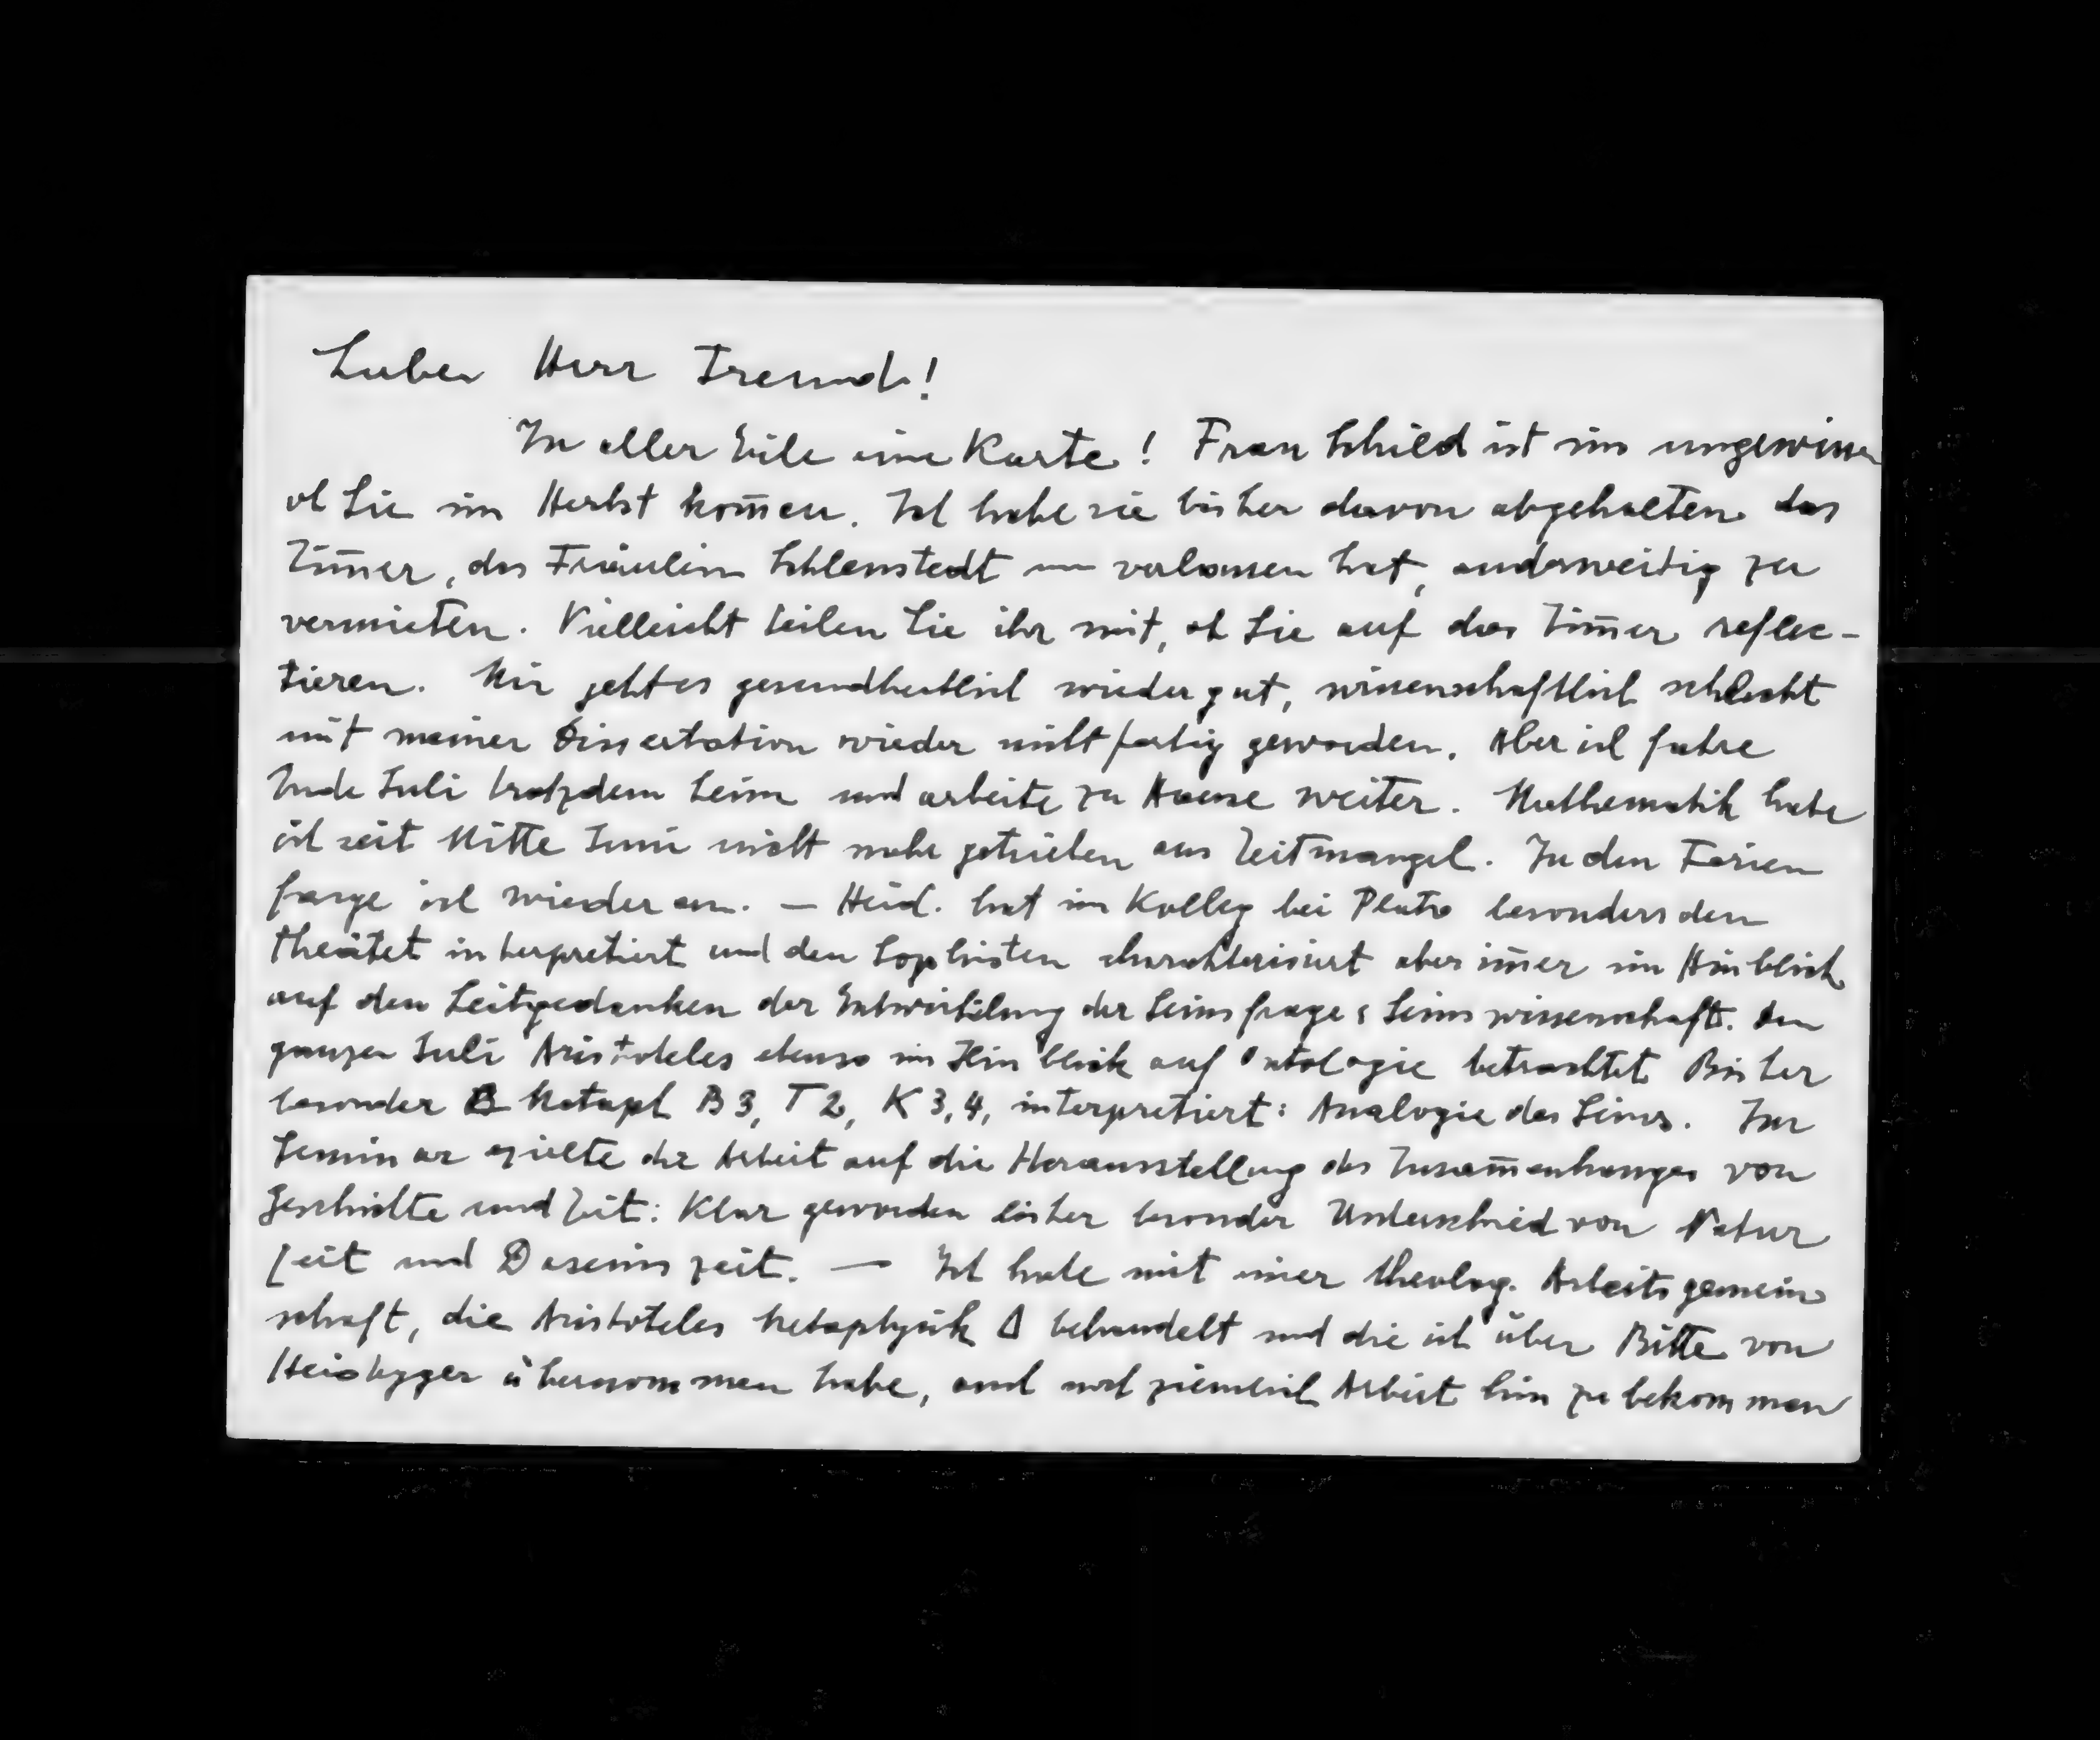 Lieber Herr Freund!
In aller Eile eine Karte! Frau Schild ist im ungewissen
ob Sie im Herbst kom̄en. Ich habe sie bisher davon abgehalten das
Zim̄er, das Fräulein Schlenstedt nun verlassen hat, anderweitig zu
vermieten. Vielleicht teilen Sie ihr mit, ob Sie auf das Zim̄er reflec-
tieren. Mir geht es gesundheitlich wieder gut, wissenschaftlich schlecht
mit meiner Dissertation wieder nicht fertig geworden. Aber ich fahre
Ende Juli trotzdem heim und arbeite zu Hause weiter. Mathematik habe
ich seit Mitte Juni nicht mehr getrieben aus Zeitmangel. In den Ferien
fange ich wieder an. — Heid. hat im Kolleg bei Plato besonders den
Theätet interpretiert und den Sophisten charakterisiert aber im̄er im Hinblick
auf den Leitgedanken der Entwicklung der Seinsfrage : Seinswissenschaft. Den
ganzen Juli Aristoteles ebenso im Hinblick auf Ontologie betrachtet Bisher
besonder Metaph B 3, Γ 2, K 3, 4, interpretiert: Analogie des Seins. Im
Seminar zielte die Arbeit auf die Herausstellung des Zusam̄enhanges von
Geschichte und Zeit: Klar geworden bisher besonder Unterschied von Natur
zeit und Daseinszeit. — Ich habe mit einer theolog. Arbeitsgemein
schaft, die Aristoteles Metaphysik Δ behandelt und die ich über Bitte von
Heidegger übernommen habe, auch noch ziemlich Arbeit hinzubekommen